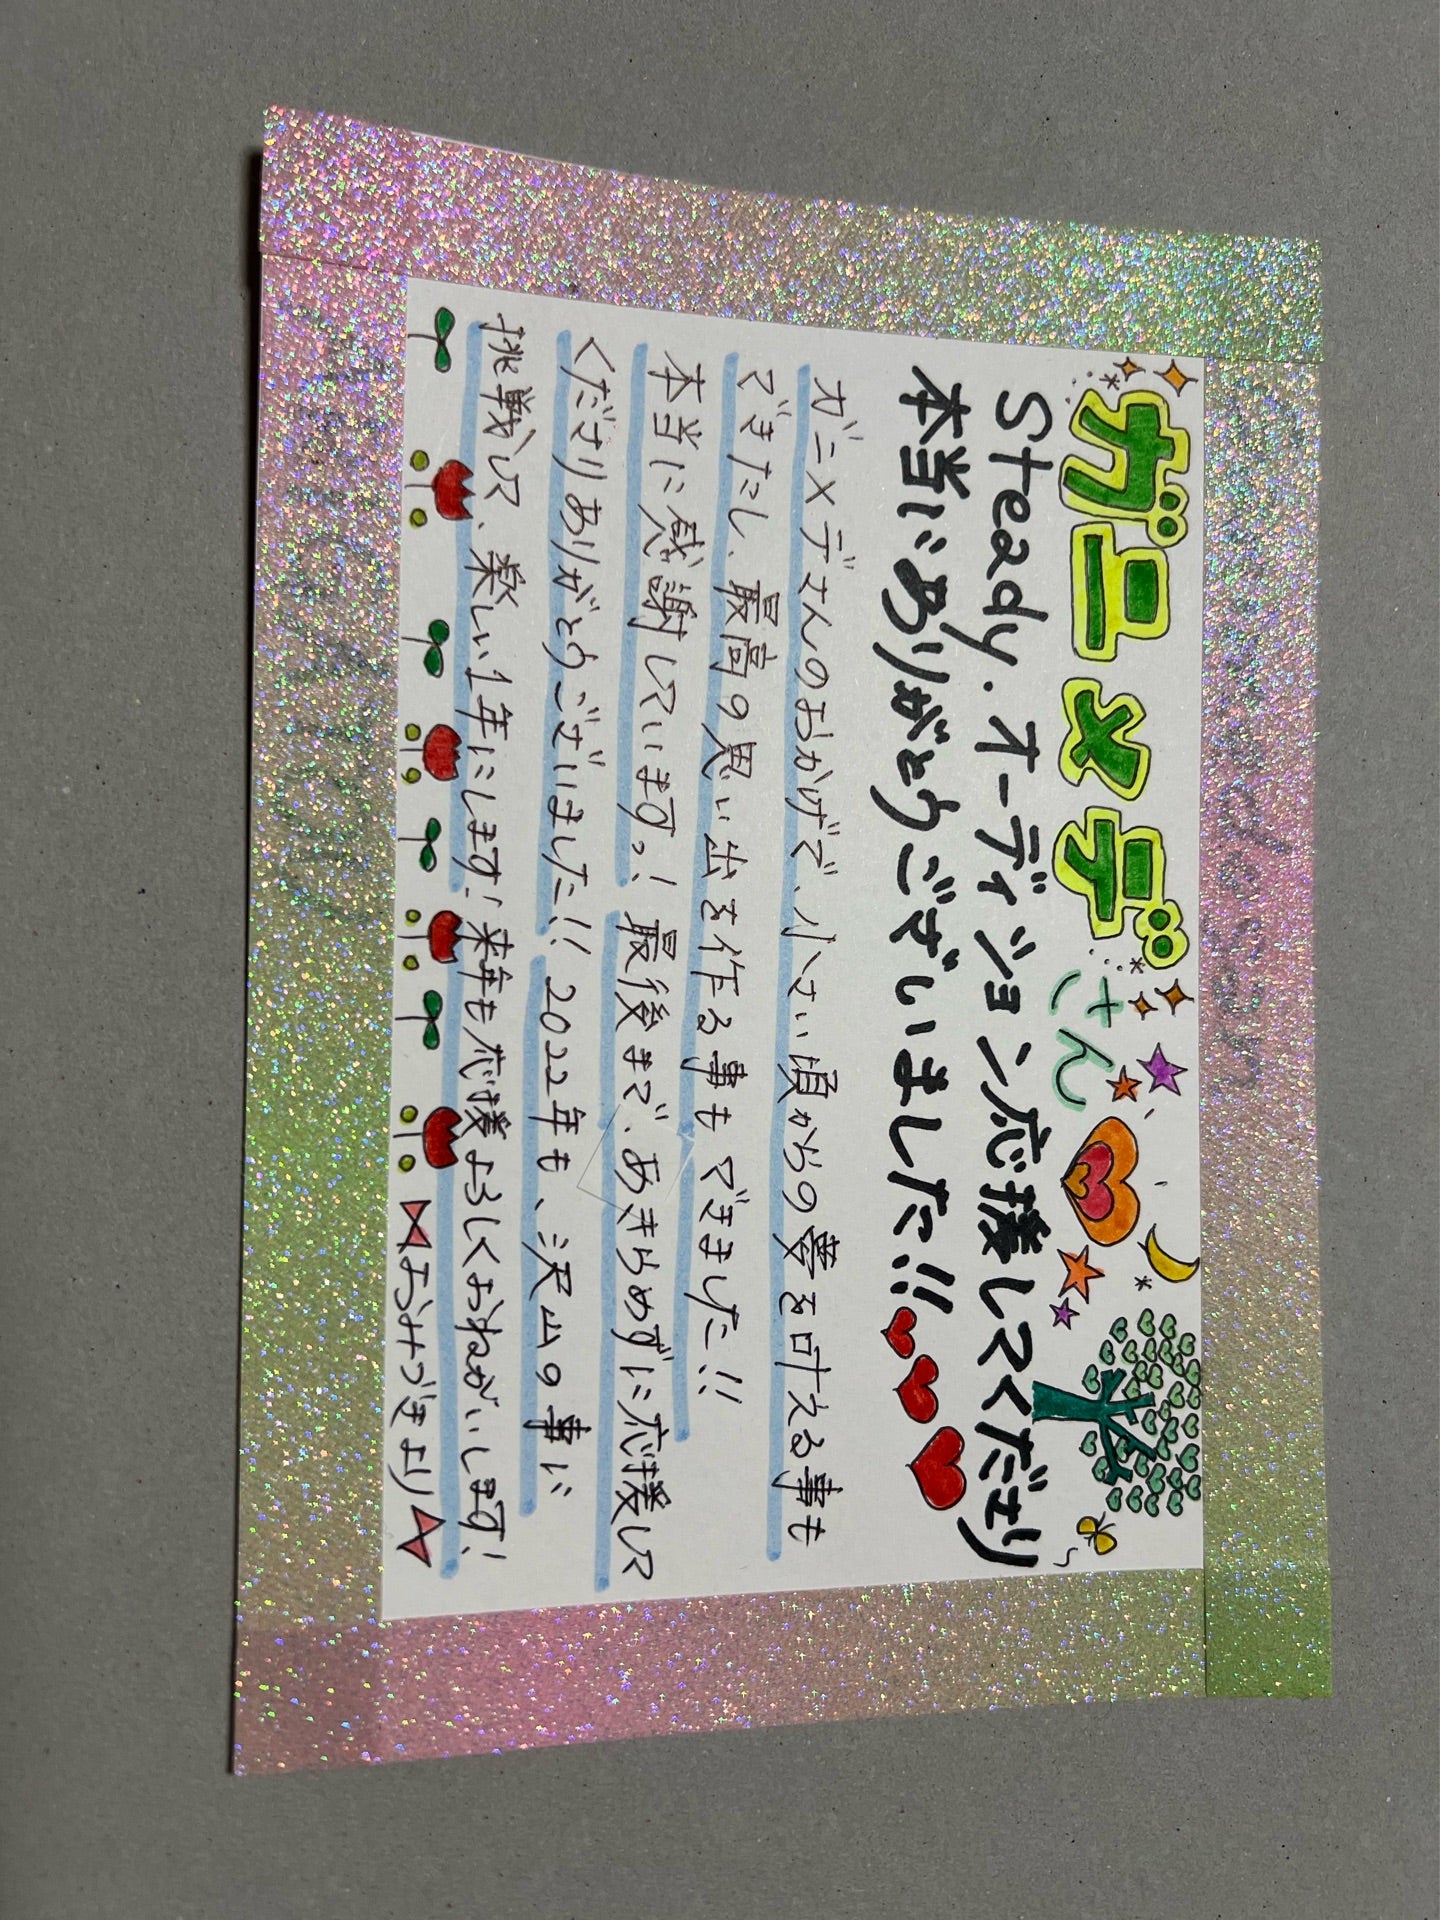 ガニメデさん
Steady.オーディション応援してくださり
本当にありがとうございました!!
ガニメデさんのおかげで、小さい頃からの夢を叶える事も
できたし、最高の思い出を作る事もできました!!
本当に感謝しています!最後まで、あきらめずに応援して
くださりありがとうございました!!2022年も、沢山の事に
挑戦して、楽しい1年にします!来年も応援よろしくおねがいします!
みづきより